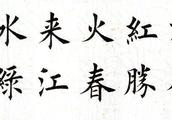 紅勝
火春
来江
水綠